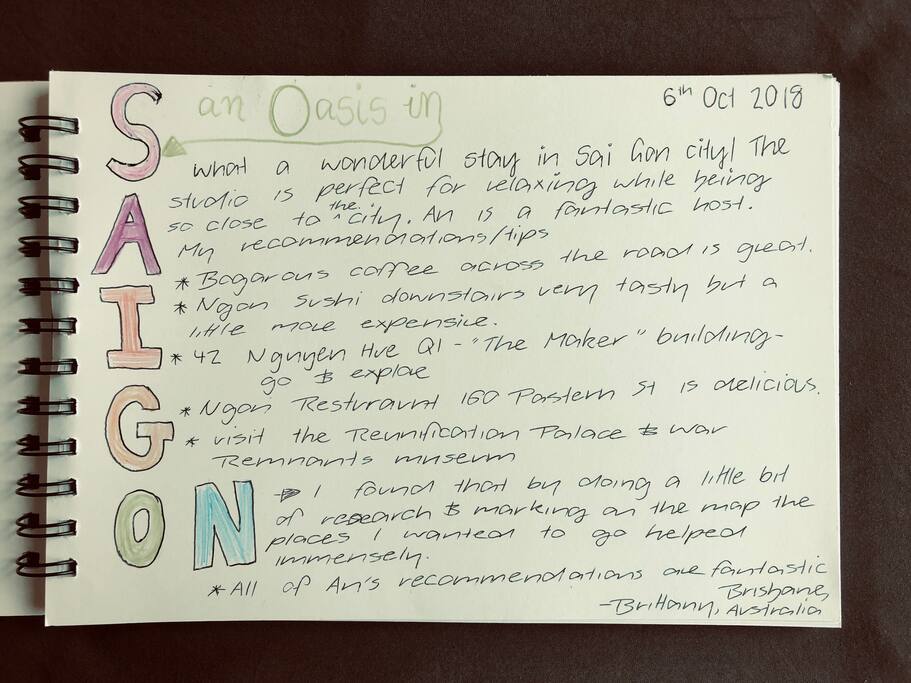 an Oasis in
SAIGON
6th Oct 2018
what a wonderful stay in Sai Gon city! The
studio is perfect for relaxing while being
so close to the city. An is a fantastic host.
My recommendations/tips
* Bogarous coffee across the road is great.
* Ngon Sushi downstairs very tasty but a
little more expensive.
* 42 Nguyen Hue Q1 - "The Maker" building -
go & explore
* Ngon Resturaunt 160 Pastern St is delicious.
* visit the Reunification Palace & War
Remnants museum
→ I found that by doing a little bit
of research & marking on the map the
places I wanted to go helped
immensely.
* All of An's recommendations are fantastic
- Brittany, Brisbane,
Australia